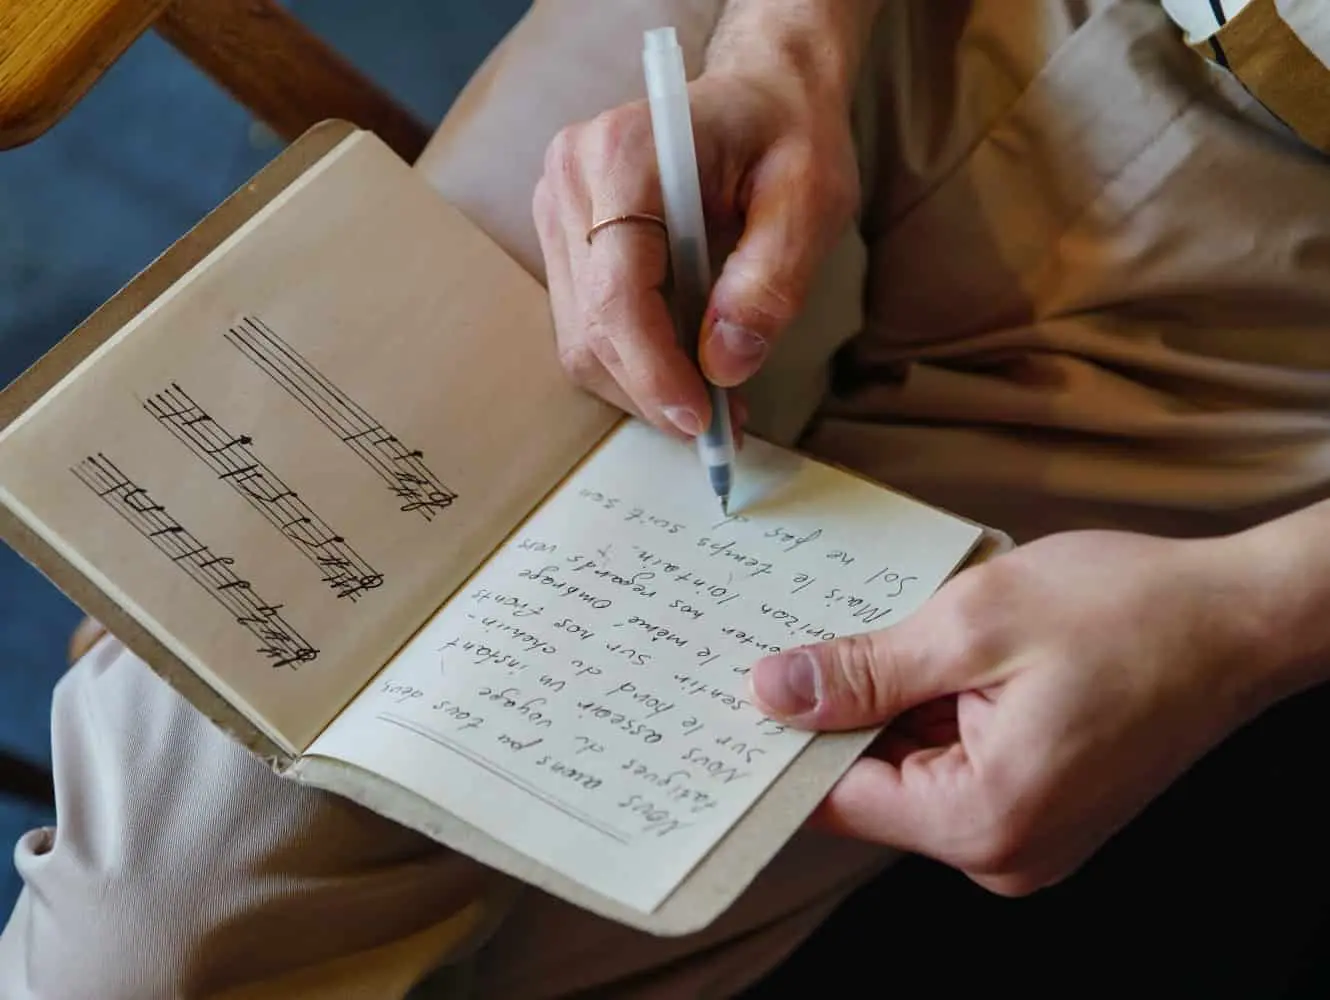 Nous avons pu tous deux
fatigués du voyage
Nous asseoir un instant
sur le bord du chemin-
Et sentir sur nos fronts
le même ombrage
nos regards vers
horizon lointain.
Mais le temps suit son
Sol ne pas d